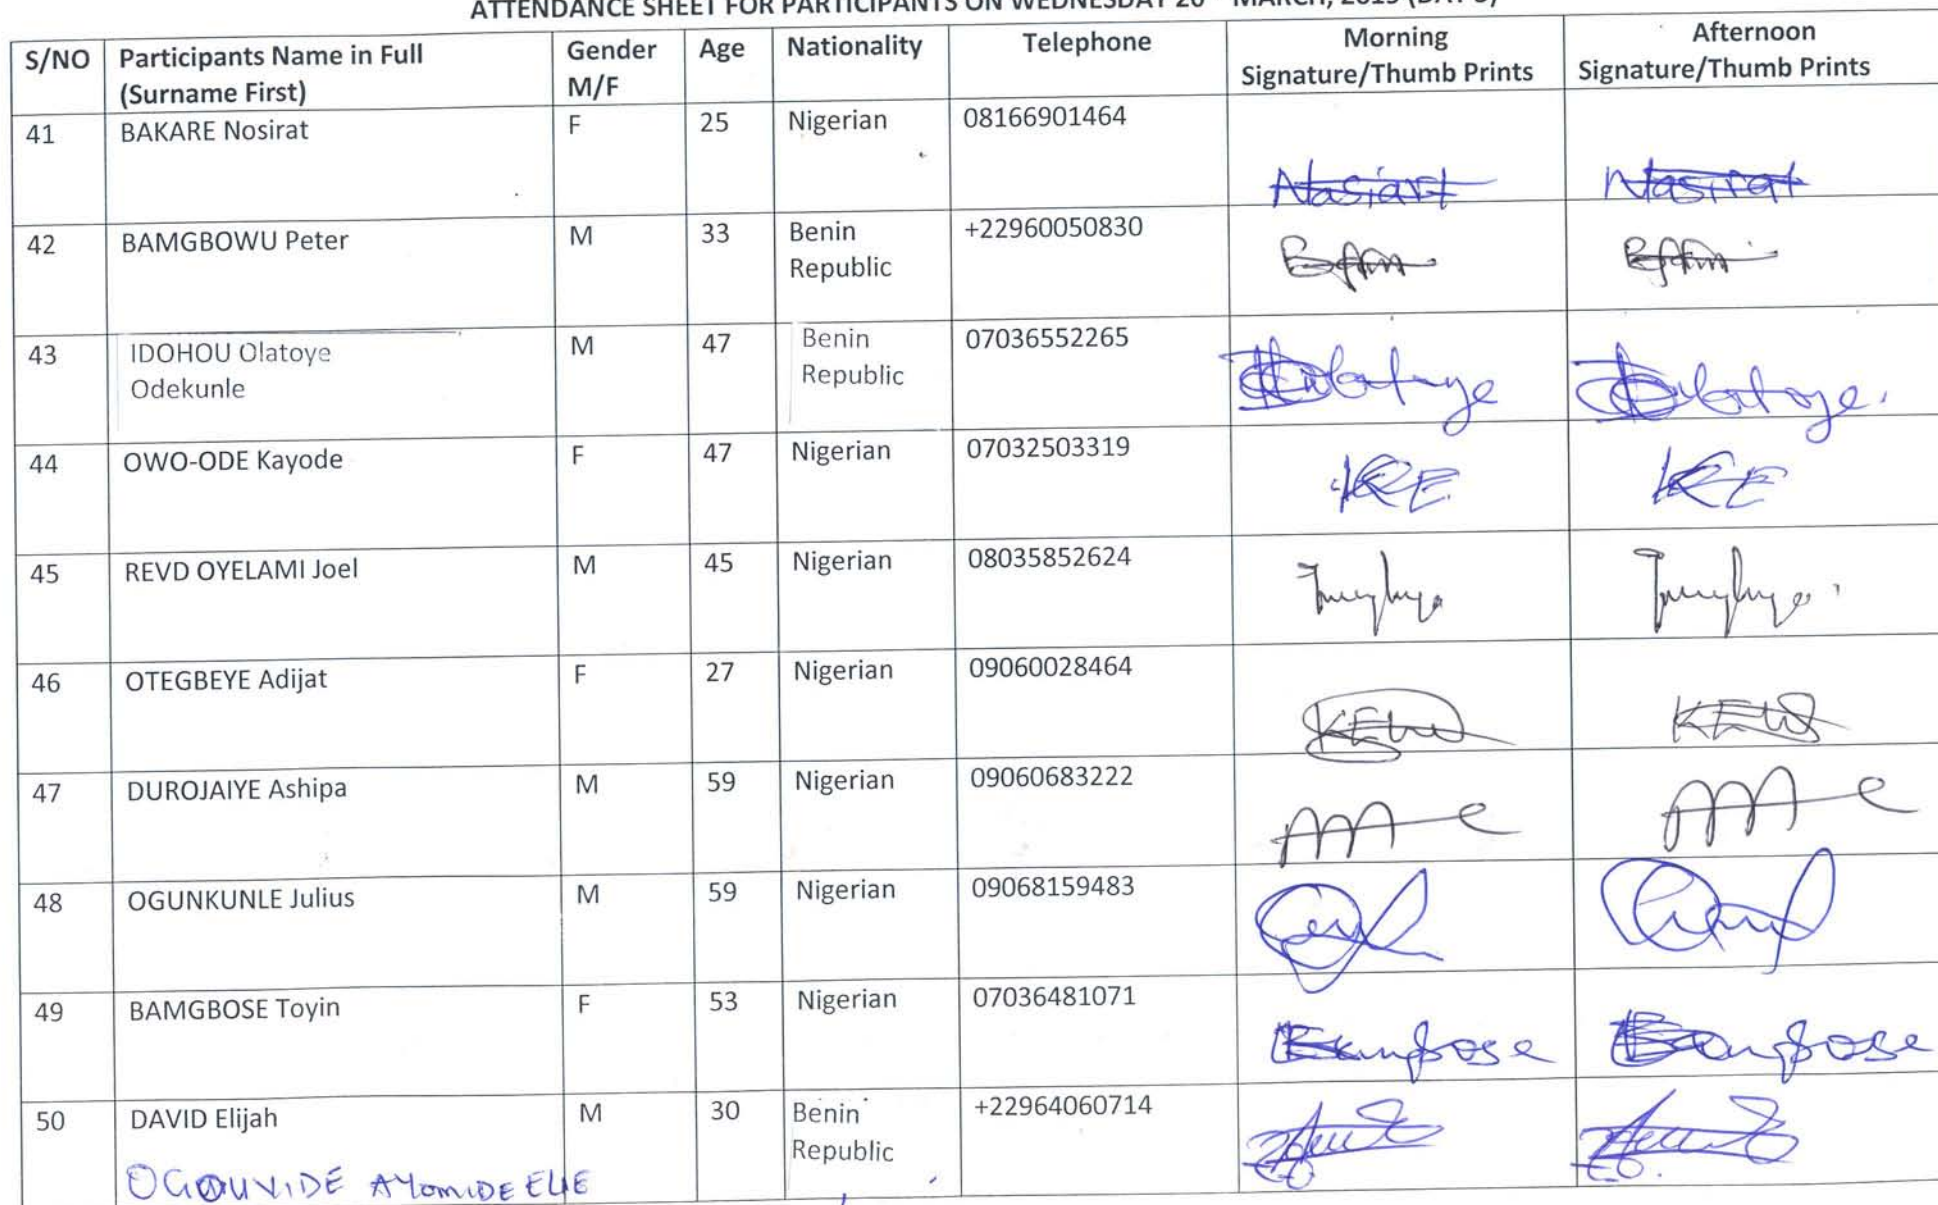 ATTENDANCE SHEET FOR PARTICIPANTS ON WEDNESDAY 20 MARCH, 2019
S/NO Participants Name in Full (Surname First) Gender M/F Age Nationality Telephone Morning Signature/Thumb Prints Afternoon Signature/Thumb Prints
41 BAKARE Nosirat F 25 Nigerian 08166901464 Nasiart Nasirat
42 BAMGBOWU Peter M 33 Benin Republic +22960050830
43 IDOHOU Olatoye Odekunle M 47 Benin Republic 07036552265
44 OWO-ODE Kayode F 47 Nigerian 07032503319
45 REVD OYELAMI Joel M 45 Nigerian 08035852624
46 OTEGBEYE Adijat F 27 Nigerian 09060028464
47 DUROJAIYE Ashipa M 59 Nigerian 09060683222
48 OGUNKUNLE Julius M 59 Nigerian 09068159483
49 BAMGBOSE Toyin F 53 Nigerian 07036481071
50 DAVID Elijah M 30 Benin Republic +22964060714
AYOMIDE ELIE